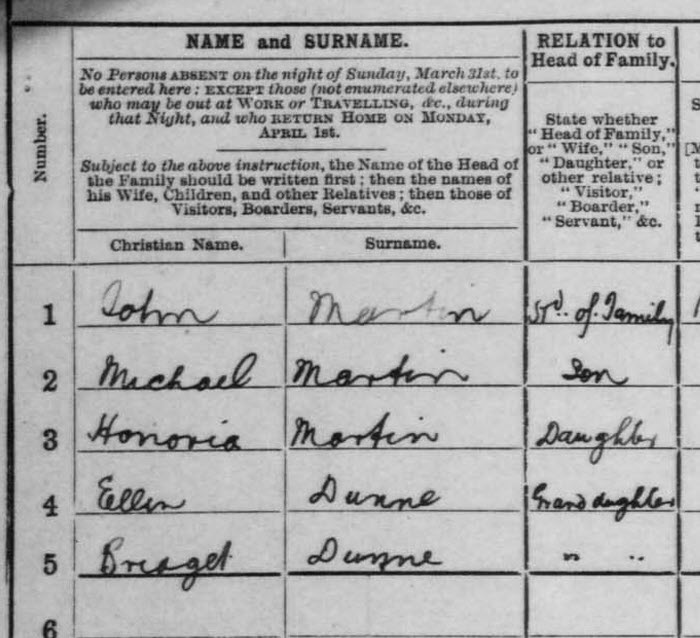 NAME and SURNAME.
RELATION to
Head of Family.
No Persons ABSENT on the night of Sunday, March 31st, to
be entered here; EXCEPT those (not enumerated elsewhere)
who may be out at WORK or TRAVELLING, &c., during
that Night, and who RETURN HOME ON MONDAY,
APRIL 1st.
Subject to the above instruction, the Name of the Head of
the Family should be written first; then the names of
his Wife, Children, and other Relatives; then those of
Visitors, Boarders, Servants, &c.
State whether
"Head of Family,"
or "Wife," "Son,"
"Daughter," or
other relative;
"Visitor,"
"Boarder,"
"Servant," &c.
Number.
Christian Name.
Surname.
1 John Martin Hd. of Family
2 Michael Martin Son
3 Honoria Martin Daughter
4 Ellen Dunne Grand daughter
5 Bridget Dunne " "
6